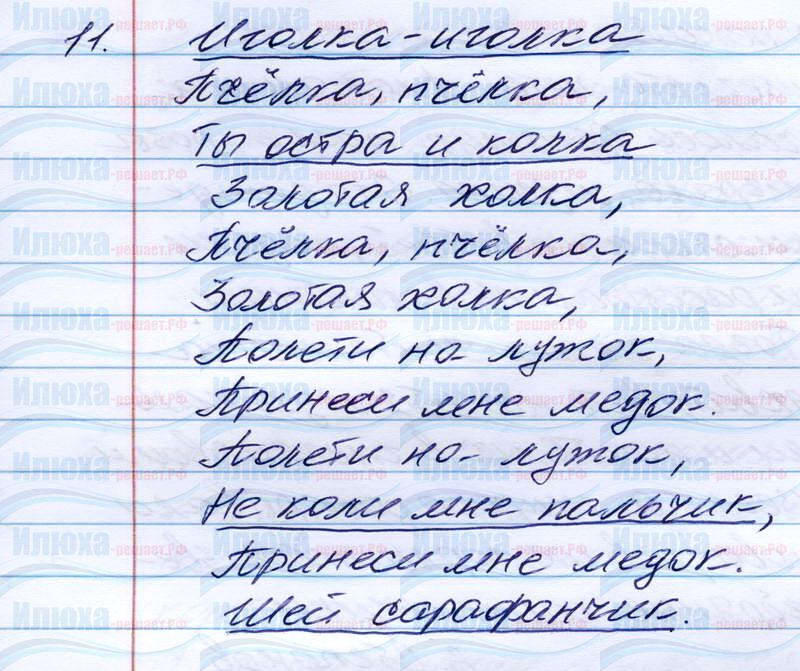 11. Иголка-иголка
Пчёлка, пчёлка,
Ты остра и колка
Золотая холка,
Пчёлка, пчёлка,
Золотая холка,
Полети на лужок,
Принеси мне медок.
Полети на лужок,
Не коли мне пальчик,
Принеси мне медок.
Шей сарафанчик.
Илюха-решает.РФ